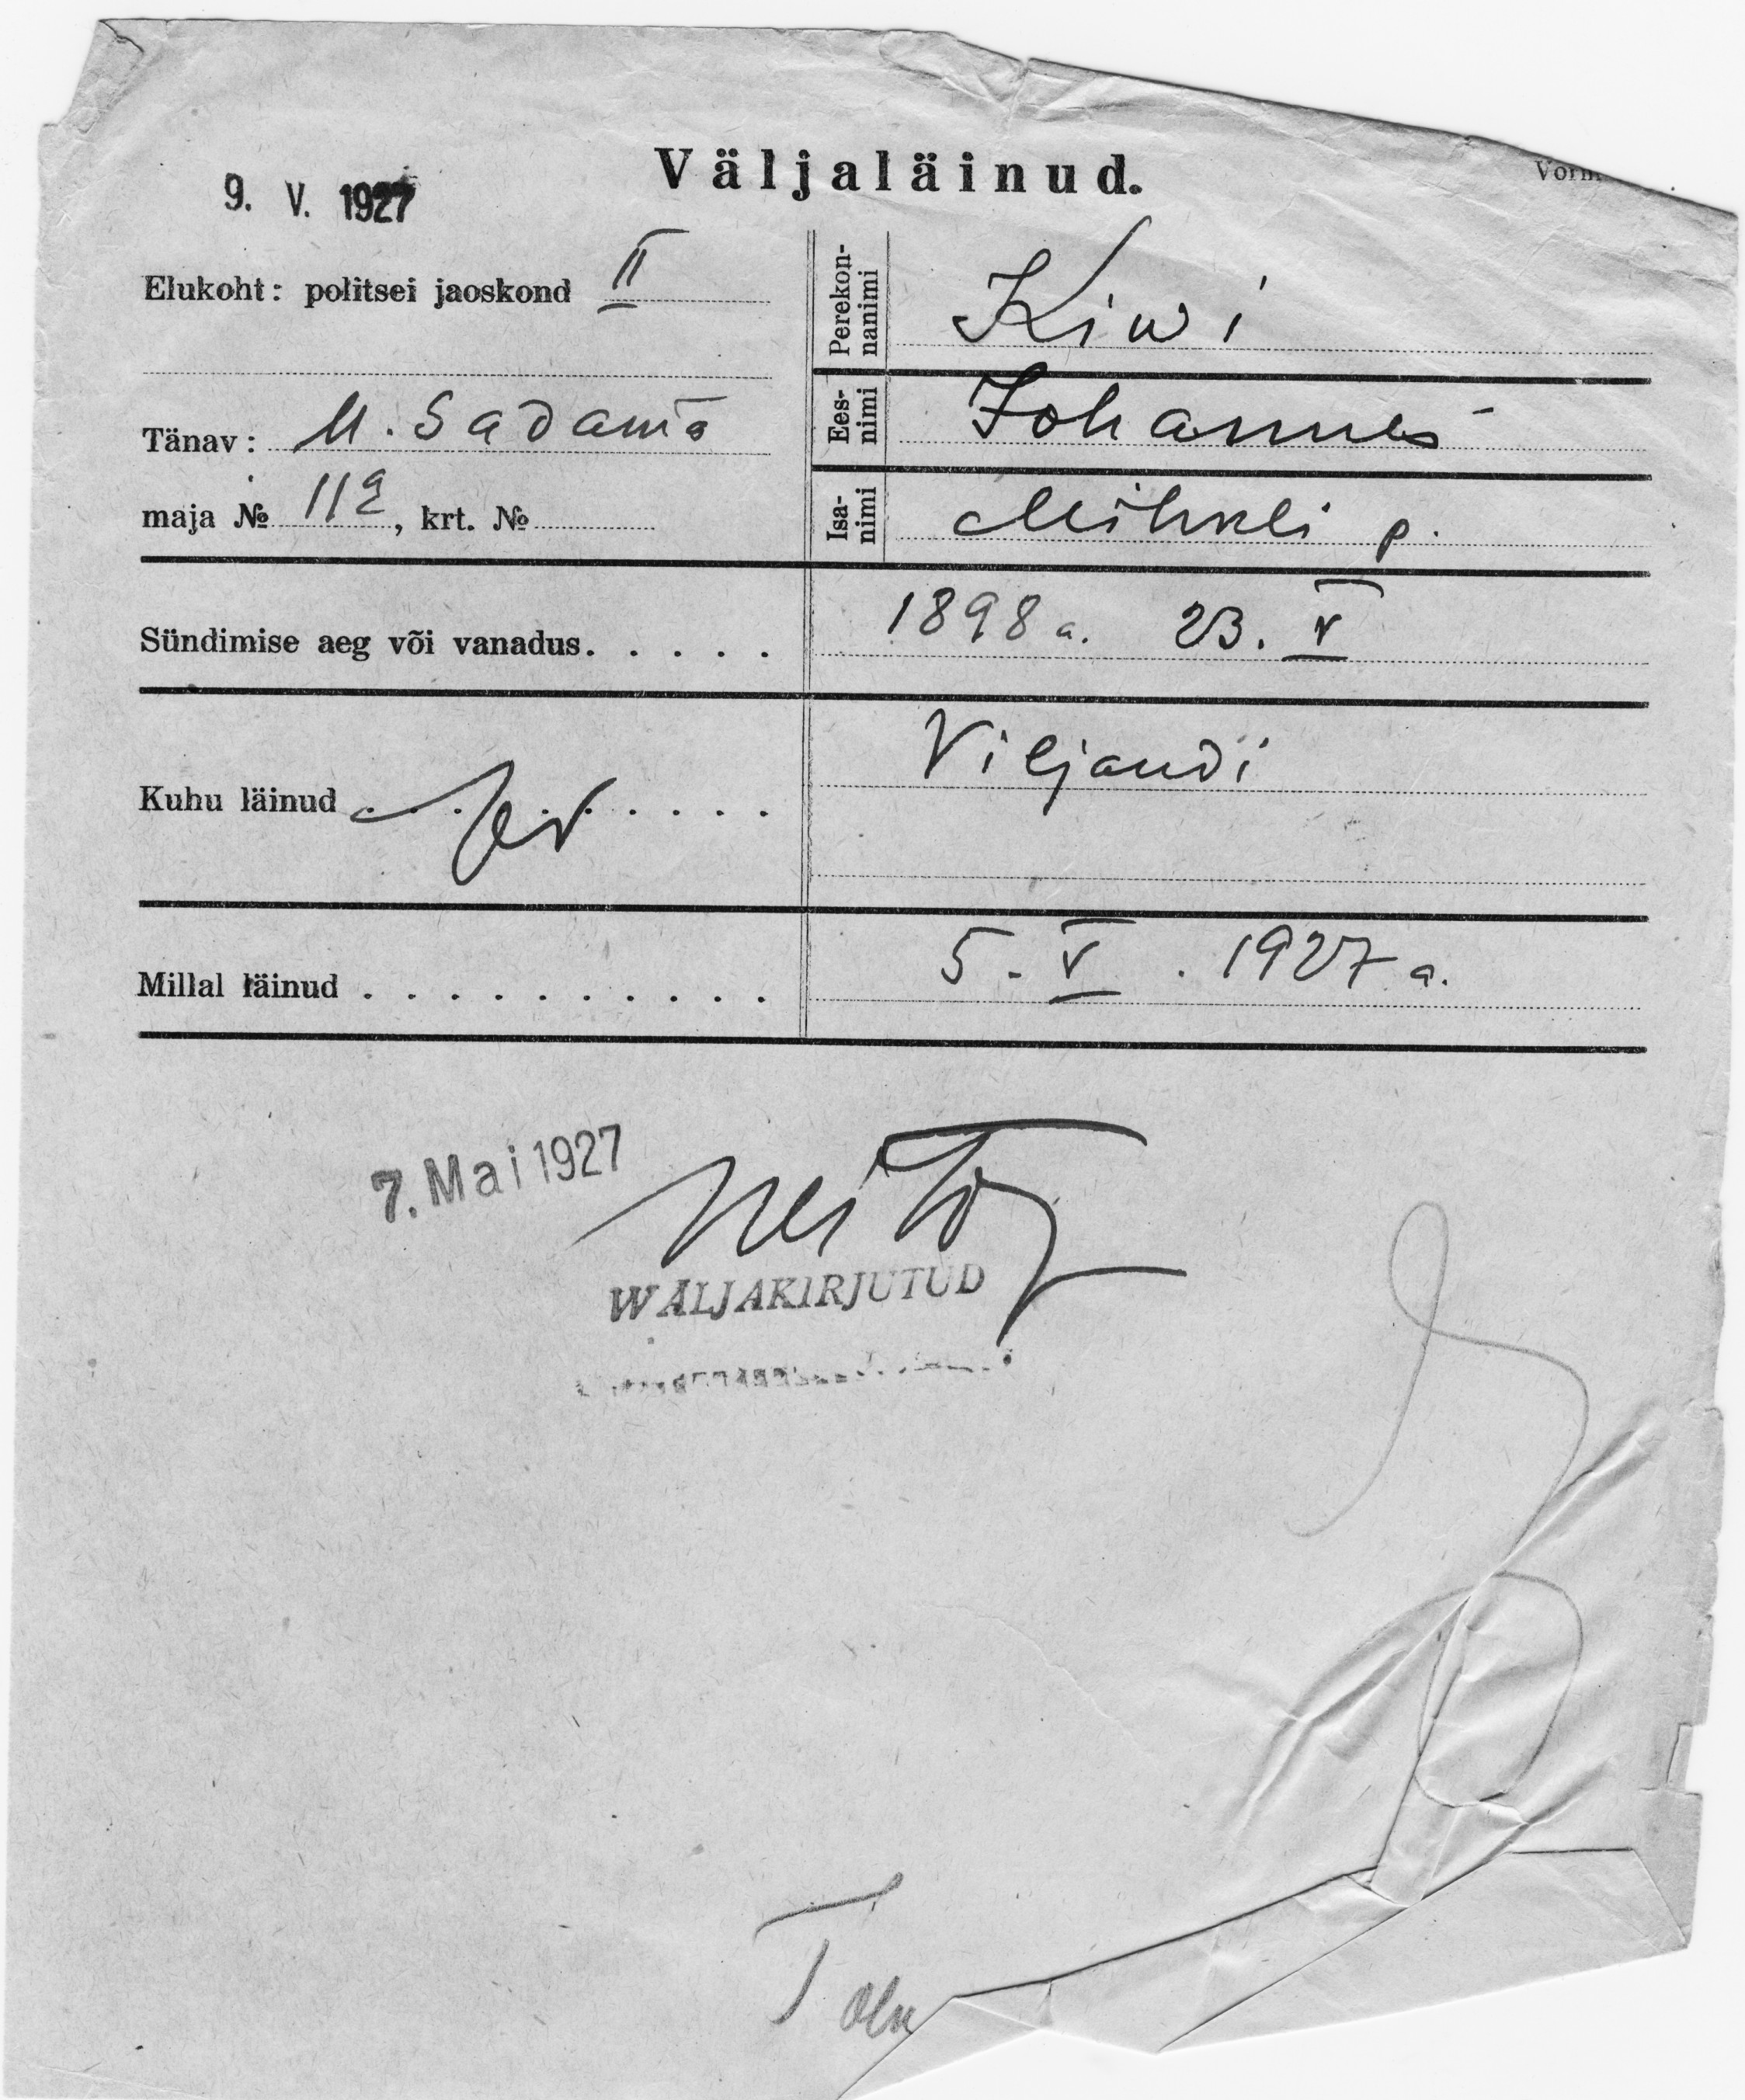 Väljaläinud.
Vorm
9. V. 1927
Elukoht: politsei jaoskond II
Tänav: U. Sadama
maja № 11a, krt. №
Perekon-
nanimi
Kiwi
Ees-
nimi
Johannes
Isa-
nimi
Mihkli p.
Sündimise aeg või vanadus. . . . .
1898 a. 23. V
Kuhu läinud . . . . . . . . . .
Viljandi
Millal läinud . . . . . . . . . .
5. V. 1927 a.
7. Mai 1927
WÄLJAKIRJUTUD